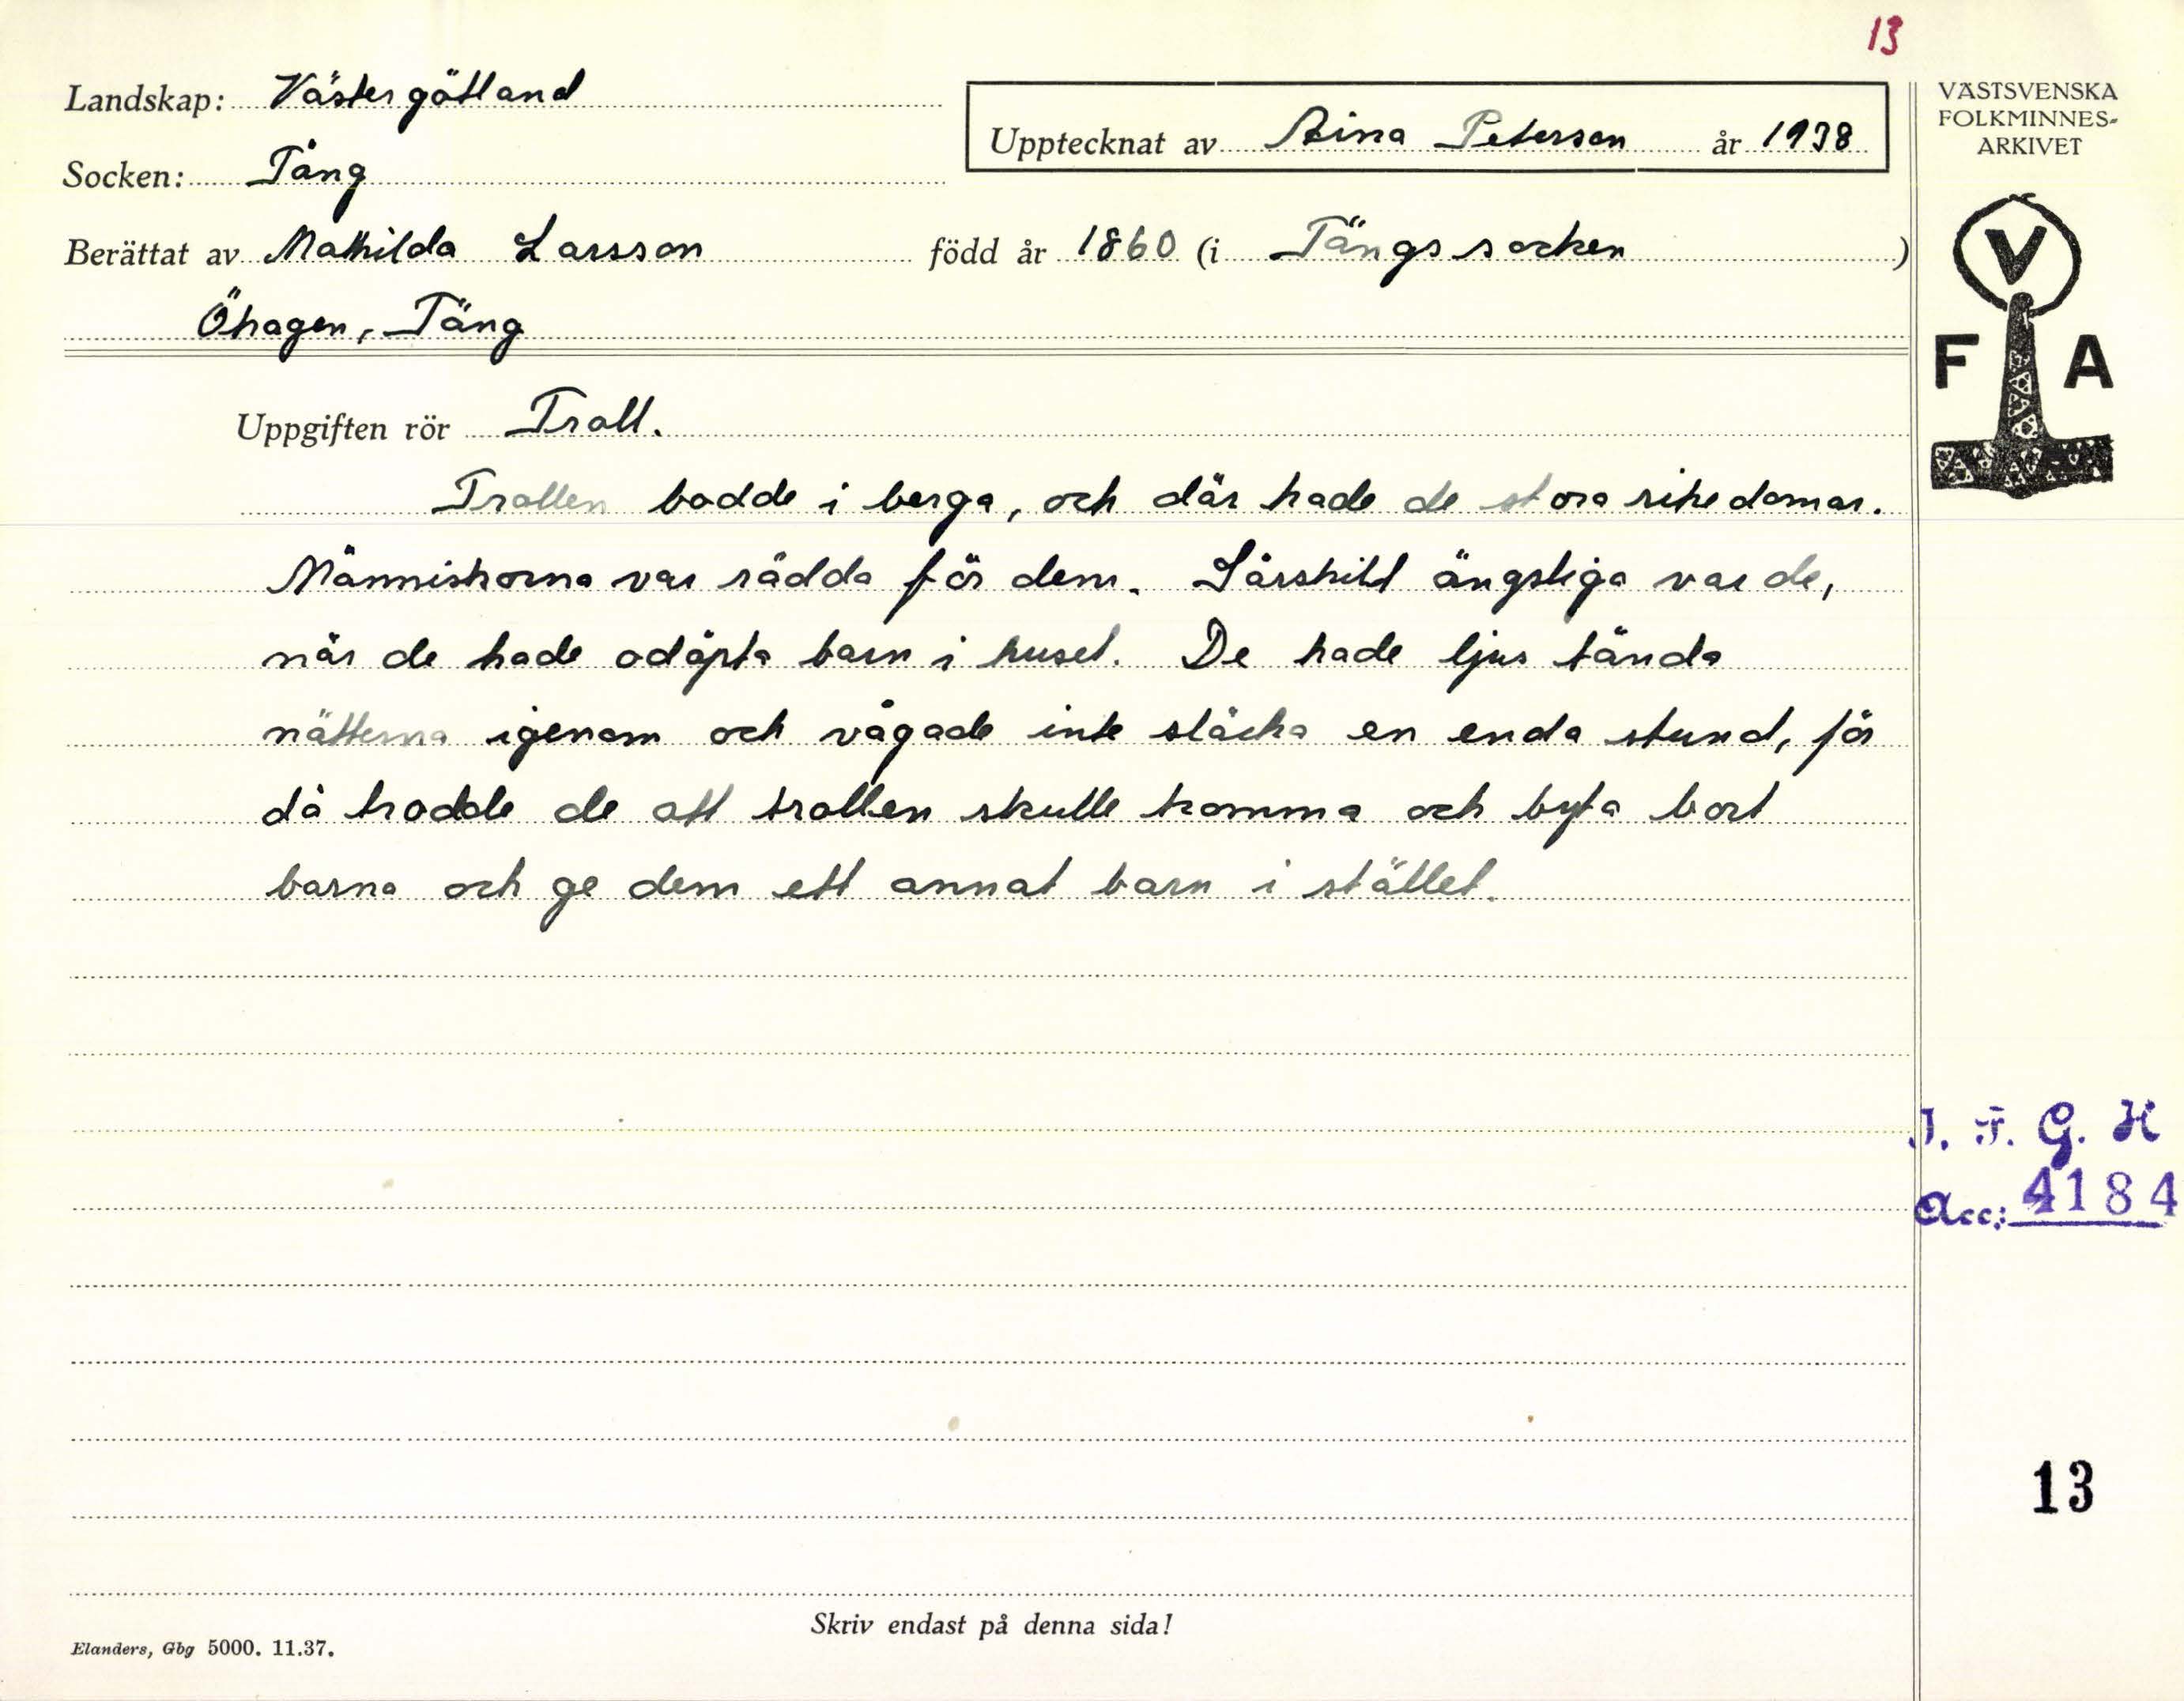 13
Landskap: Västergötland
Upptecknat av Aina Peterson år 1938
VÄSTSVENSKA
FOLKMINNES-
ARKIVET
Socken: Täng
Berättat av Mathilda Larsson född år 1860 (i Tängs socken)
Öhagen, Täng
V
F A
Uppgiften rör Troll.
Trollen bodde i berga, och där hade de stora rikedomar.
Människorna var rädda för dem. Särskild ängsliga var de,
när de hade odöpta barn i huset. De hade ljus tända
nätterna igenom och vågade inte släcka en enda stund, för
då trodde de att trollen skulle komma och byta bort
barna och ge dem ett annat barn i stället.
I. F. G. H
Acc: 4184
13
Skriv endast på denna sida!
Elanders, Gbg 5000. 11.37.